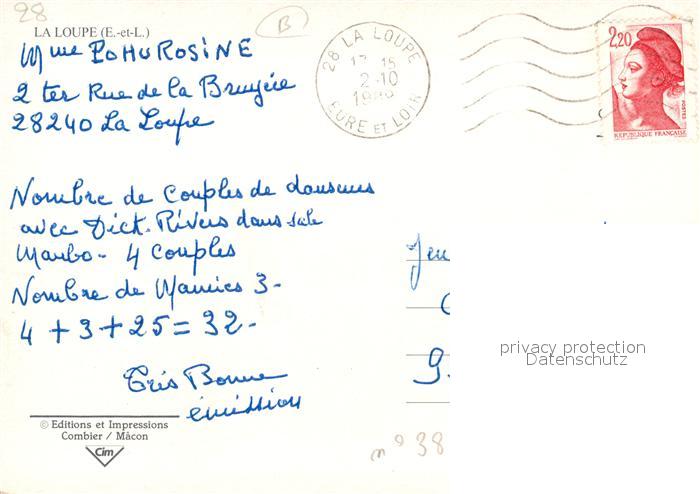 28
B
LA LOUPE (E.-et-L.)
Mme POHU ROSINE
2 ter Rue de la Bruyère
28240 La Loupe
28 LA LOUPE
17-15
2-10
EURE ET LOIR
2,20
POSTES
REPUBLIQUE FRANÇAISE
Nombre de Couples de danseurs
avec Dick. Rivers dans
4 Couples
Nombre de Mamies 3-
4 + 3 + 25 = 32-
Très Bonne
émission
Jeu
privacy protection
Datenschutz
© Editions et Impressions
Combier / Mâcon
Cim
n° 38